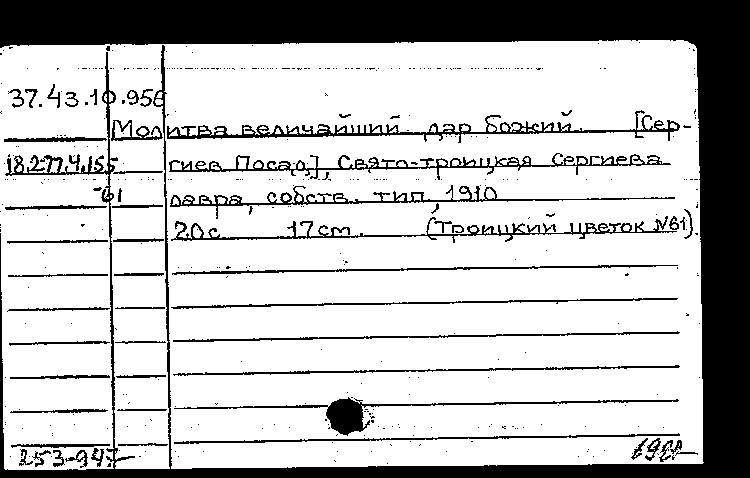 37.43.10.956
Молитва величайший дар божий. [Сер-
18.277.4.155 гиев Посад], Свято-троицкая Сергиева
-61 лавра, собств. тип, 1910
20с 17cm. (Троицкий цветок №61)
253-947